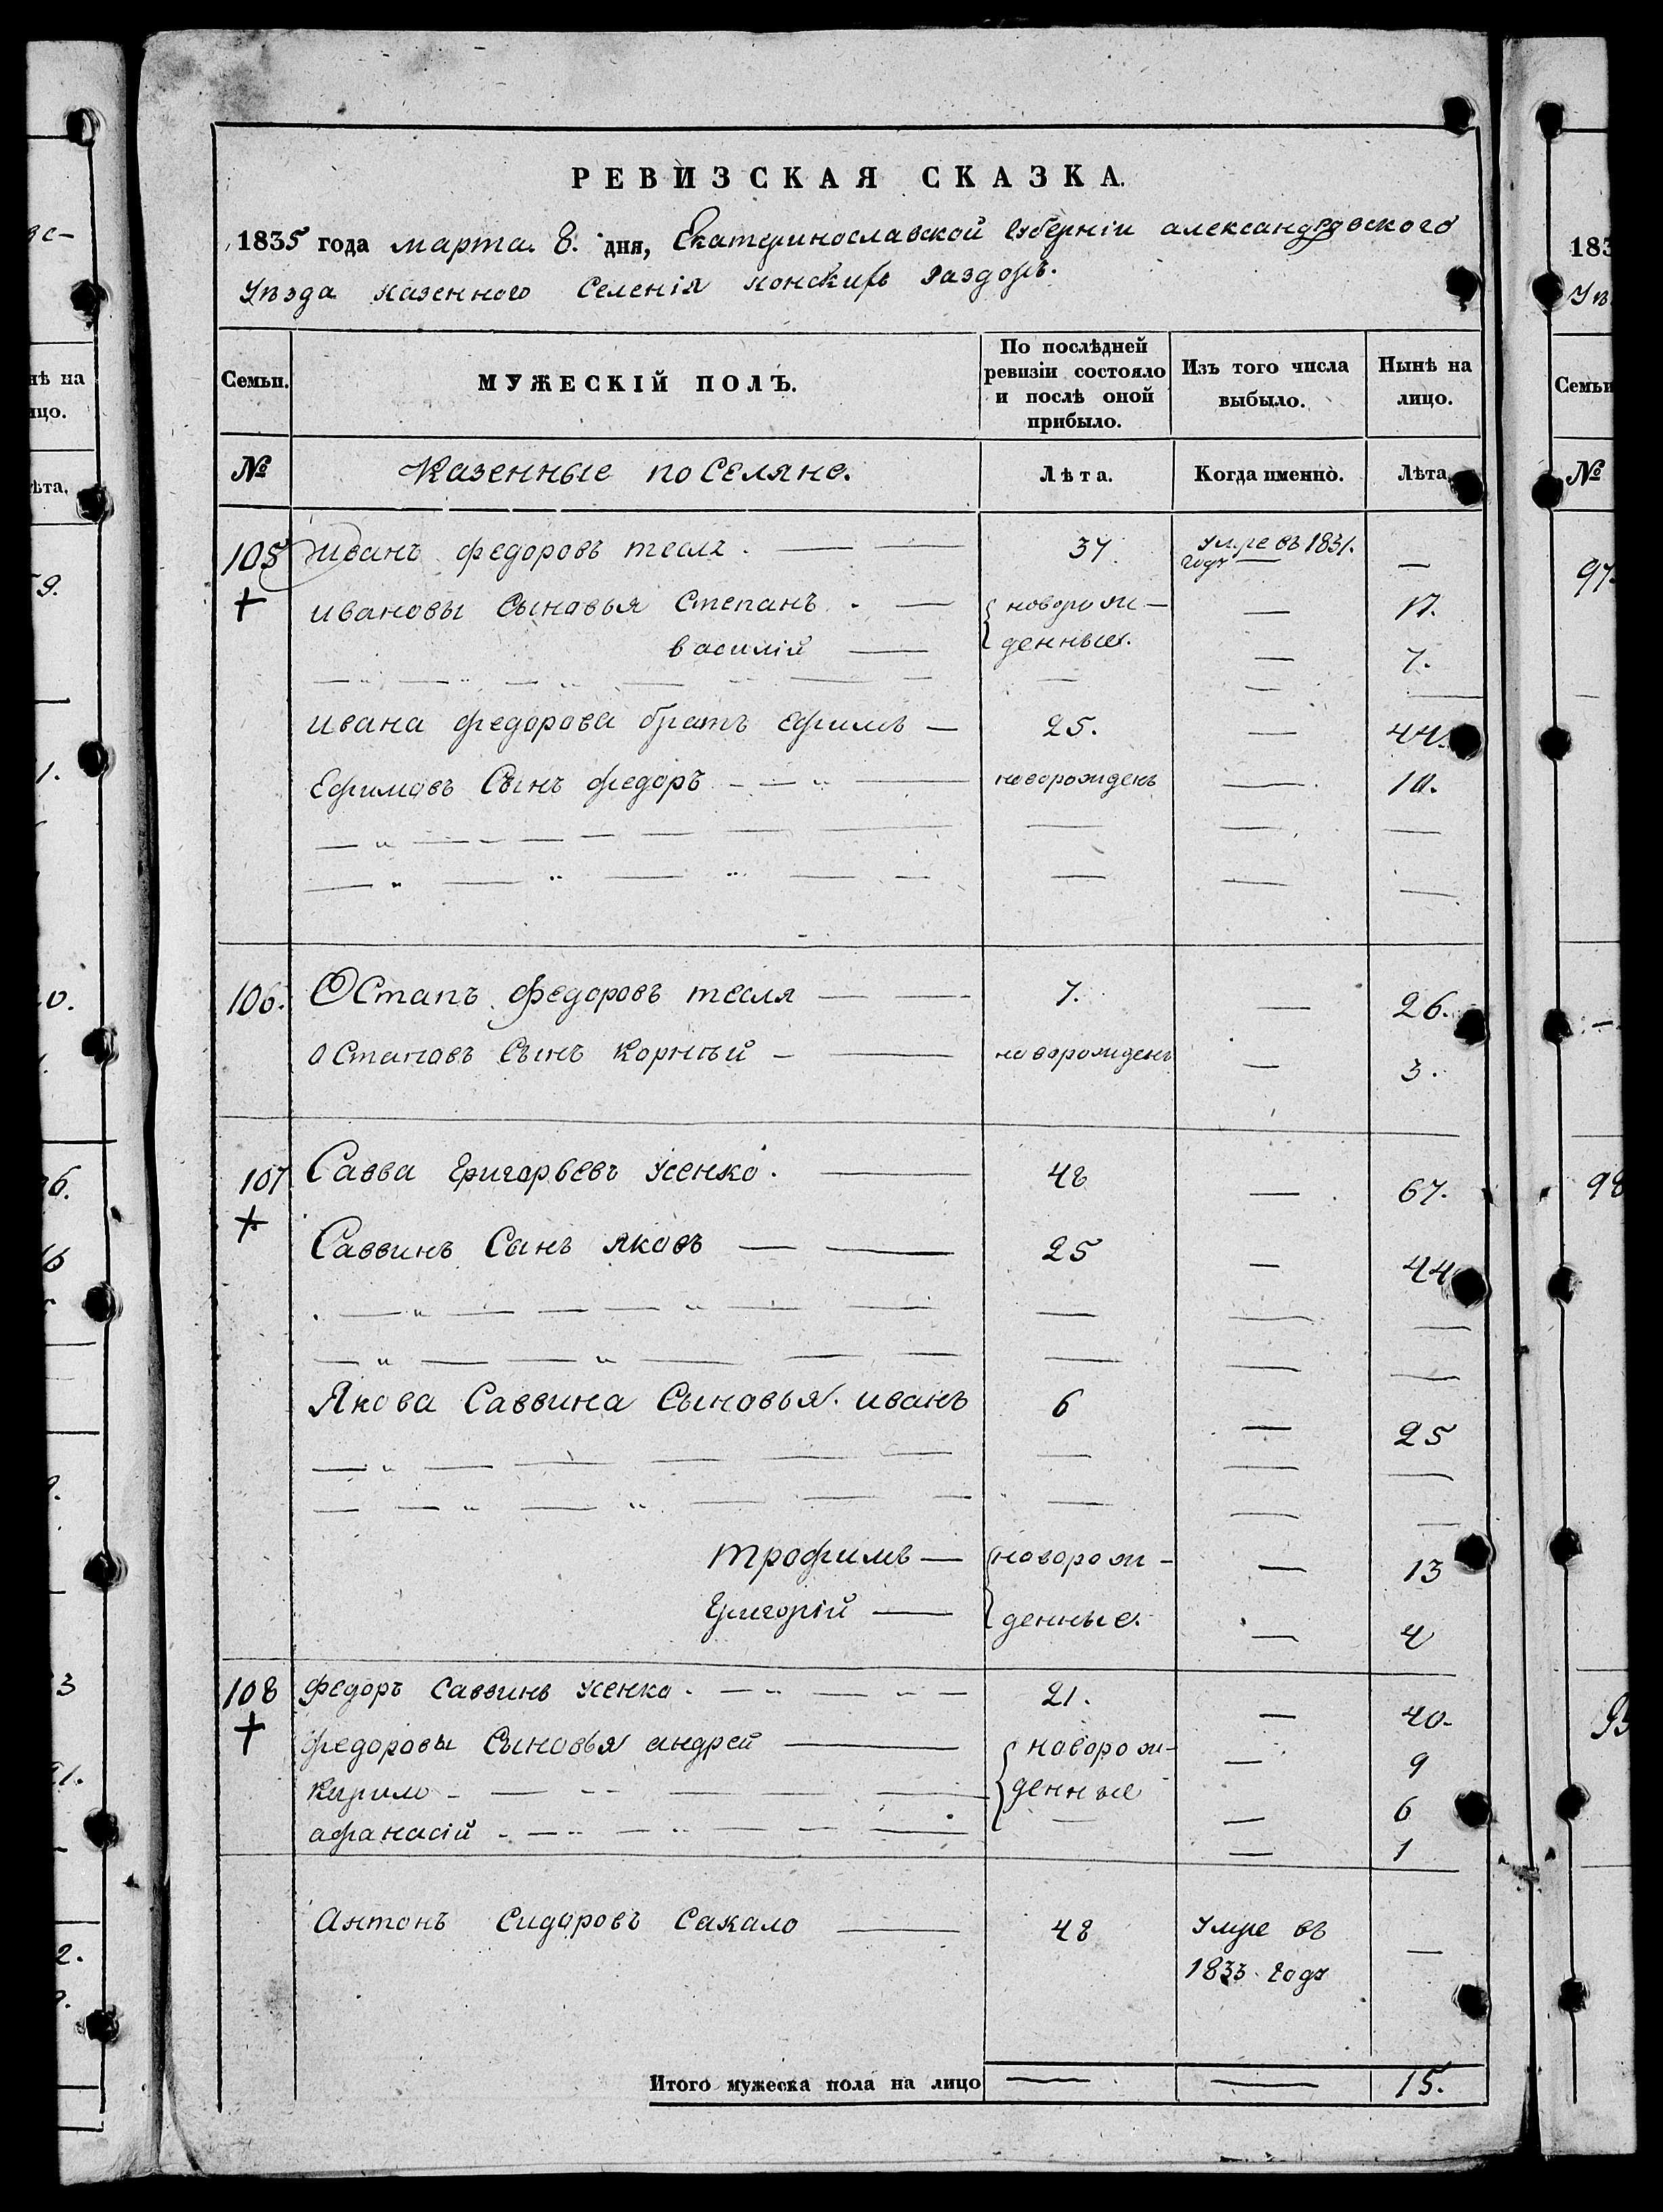 РЕВИЗСКАЯ СКАЗКА.
1835 года марта 8. дня, Екатеринославской Губерніи александровского
Уѣзда казенного Селенія конскихъ Раздоръ.
Семьи. МУЖЕСКІЙ ПОЛЪ. По послѣдней ревизіи состояло и послѣ оной прибыло. Изъ того числа выбыло. Нынѣ на лицо.
№ Казенные поселяне. Лѣта. Когда именно. Лѣта.
105 Иванъ федоровъ тесля. — — 37 Умре въ 1831. годȣ — —
+ ивановы Сыновья Степанъ. — { новорож- — 17.
василій — денные. — 7.
ивана федорова братъ Ефимъ — 25. — 44.
Ефимовъ Сынъ федоръ — новорожденъ — 10.
106. Остапъ федоровъ тесля — — 7. — 26.
Остаповъ Сынъ Корній — — новорожденъ — 3.
107 Савва Григорьевъ Усенко. — 48 — 67.
+ Саввинъ Сынъ яковъ — — 25 — 44
Якова Саввина Сыновья. иванъ 6 — 25
трофимъ — { новорож- — 13
Григорій — денные. — 4
108 федоръ Саввинъ Усенко. — 21. — 40.
+ федоровы Сыновья андрей — { новорож- — 9
Кирило — денные — 6
афанасій — — 1
Антонъ Сидоровъ Сакало — 48 Умре въ —
1833 годȣ
Итого мужеска пола на лицо — — 15.
183
Уѣ
Семьи
№
97
98
нѣ на
ицо.
ѣта.